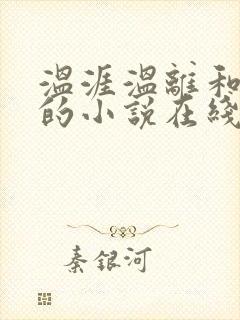 温涯温離和
的小説在綫
秦銀河